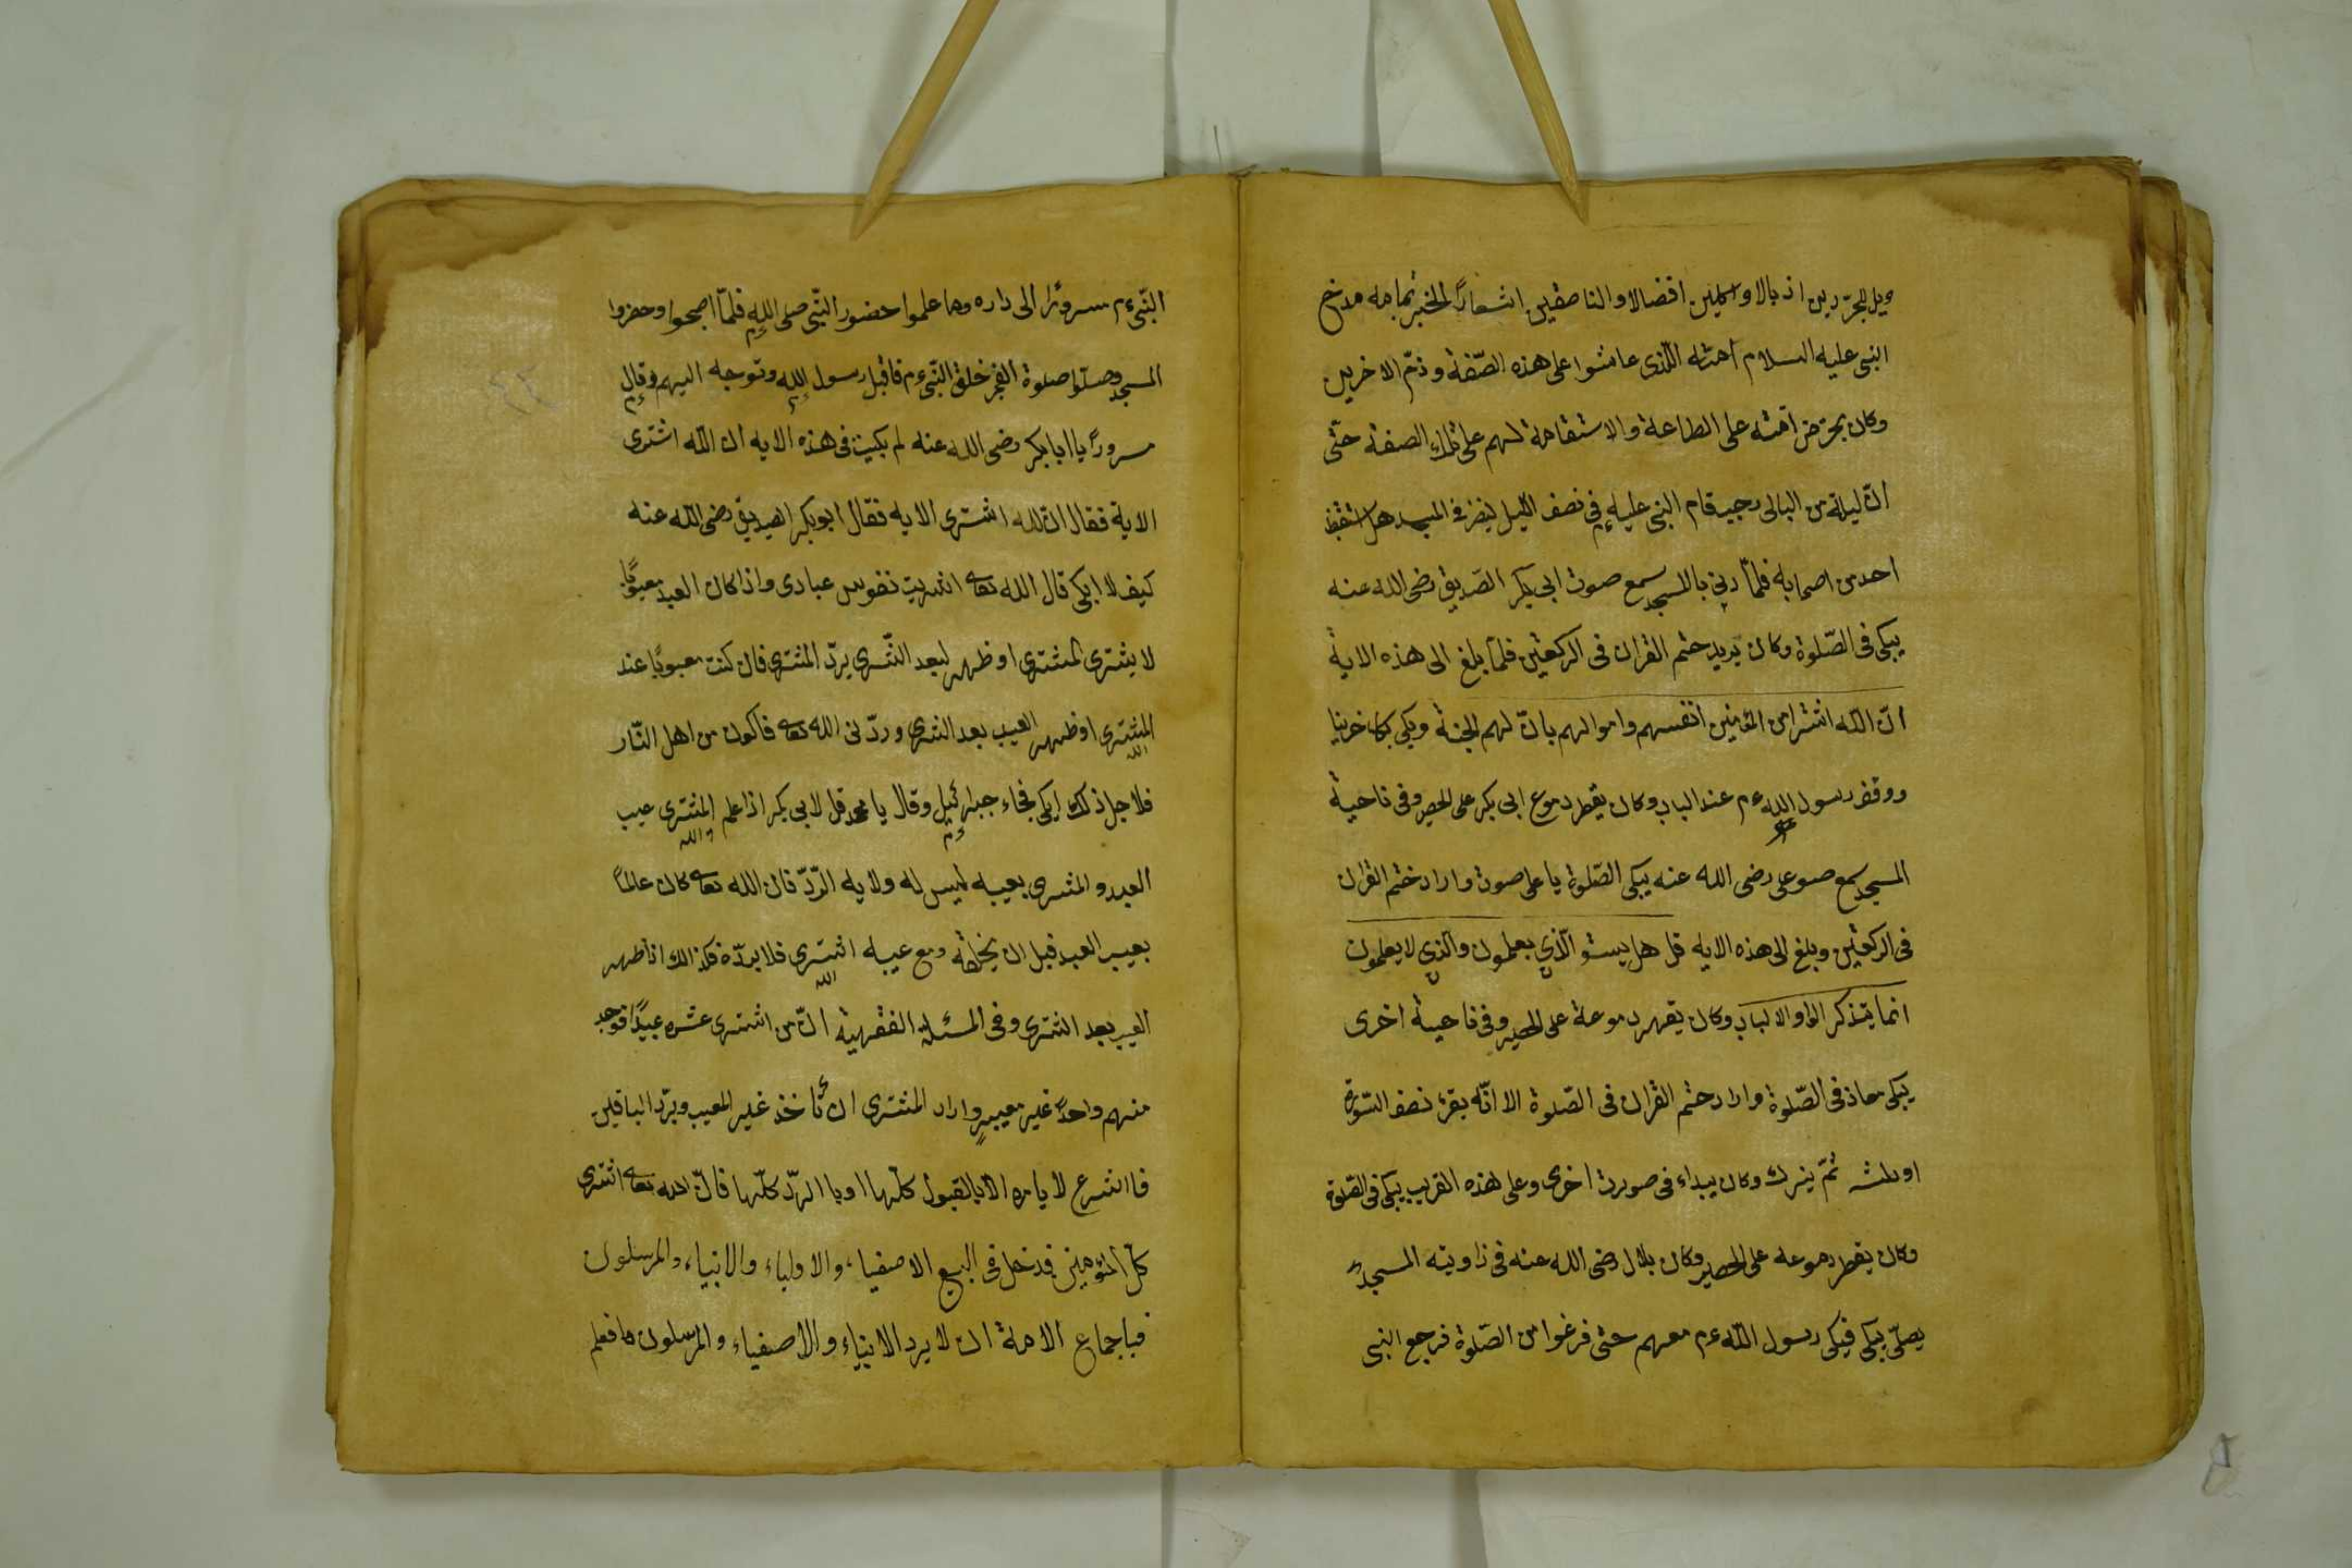 ويل للجرّدين اذبالا واكلين افضالا والناصقين اشعاراً الخبر تمامه مدح
النبى عليه السلام امته الّذى عاشوا على هذه الصّفة وذمّ الاخرين
وكان يحرّض امّته على الطاعة والاستقامة لهم على تلك الصفة حتّى
انّ ليلة من اليالى رجب قام النبى عليه م فى نصف اللّيل لينظر فى المسجد هل استيقظ
احد من اصحابه فلمّا دنى بالمسجد سمع صوت ابى بكر الصّديق رضى الله عنه
يبكى فى الصّلوة وكان يريد ختم القران فى الركعتين فلمّا بلغ الى هذه الاية
انّ اللّه اشترا من المؤمنين انفسهم واموالهم بانّ لهم الجنة ويبكى بكاء حزينا
ووقف رسول الله ءم عند الباب وكان يقطر دموع ابى بكر على الحصير وفى ناحية
المسجد سمع صوت على رضى الله عنه يبكى الصّلوة باعلى صوت واراد ختم القران
فى الركعتين وبلغ الى هذه الايه قل هل يستو الّذين يعلمون والّذين لا يعلمون
انما يتذكر الوا والالباب وكان يقهر دموعة على الحصير وفى ناحية اخرى
يبكى معاذ فى الصّلوة واراد ختم القران فى الصّلوة الا انّه يقرء نصف السّورة
او ثلثه ثمّ يترك وكان يبداء فى صورت اخرى وعلى هذه القريب يبكى فى الصّلوة
وكان يقطر دموعه على الحصير وكان بلال رضى الله عنه فى زاويته المسجد
يصلّى يبكى فيبكى رسول اللّه ءم معهم حتى فرغوا من الصّلوة فرجع النبى
النّبى ءم سرورًا الى داره وما علموا حضور النّبى صلى الله م فلمّا اصبحوا وحضروا
المسجد وصلّوا صلوة الفجر خلف النّبى ءم فاقبل رسول الله وتوجه اليهم وقال
مسروراً يا ابا بكر رضى الله عنه لم بكيت فى هذه الايه ان اللّه اشترى
الاية فقال ان الله اشترى الايه فقال ابو بكر الصديق رضى اللّه عنه
كيف لا ابكى قال الله تعا اشتريت نفوس عبادى واذا كان العبد معيوبًا
لا يشترى المشترى او ظهر بعد الشّرى يردّ المشترى فان كنت معيوبًا عند
المشترى الله او ظهر العيب بعد الشرى وردّنى الله تعا فاكون من اهل النّار
فلاجل ذلك ابكى فجاء جبرائيل ءم وقال يا محمد قل لابى بكر اذا علم المشترى والله عيب
العبد والمشترى بعيبه ليس له ولايه الرّدّ فان الله تعا كان عالمًا
بعيب العبد قبل ان يخلقه ومع عيبه اشترى الله فلا يردّه فكذالك اذا ظهر
العيب بعد الشرى وفى المسئلة الفقهية انّ من اشترى عشره عبيدًا فوجد
منهم واحدًا غير معيبٍ واراد المشترى ان يأخذ غير المعيب ويردّ الباقين
فاالشرع لا يامره الّا بالقبول كلّها او باالردّ كلّها فانّ الله تعا اشترى
كلّ المؤمنين فدخل فى البيع الاصفياء والاولياء والانبياء والمرسلون
فباجماع الامة ان لا يرد الانبياء والاصفياء والمرسلون فافهم